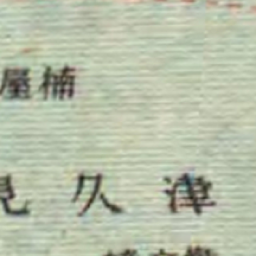 屋楠
見久津